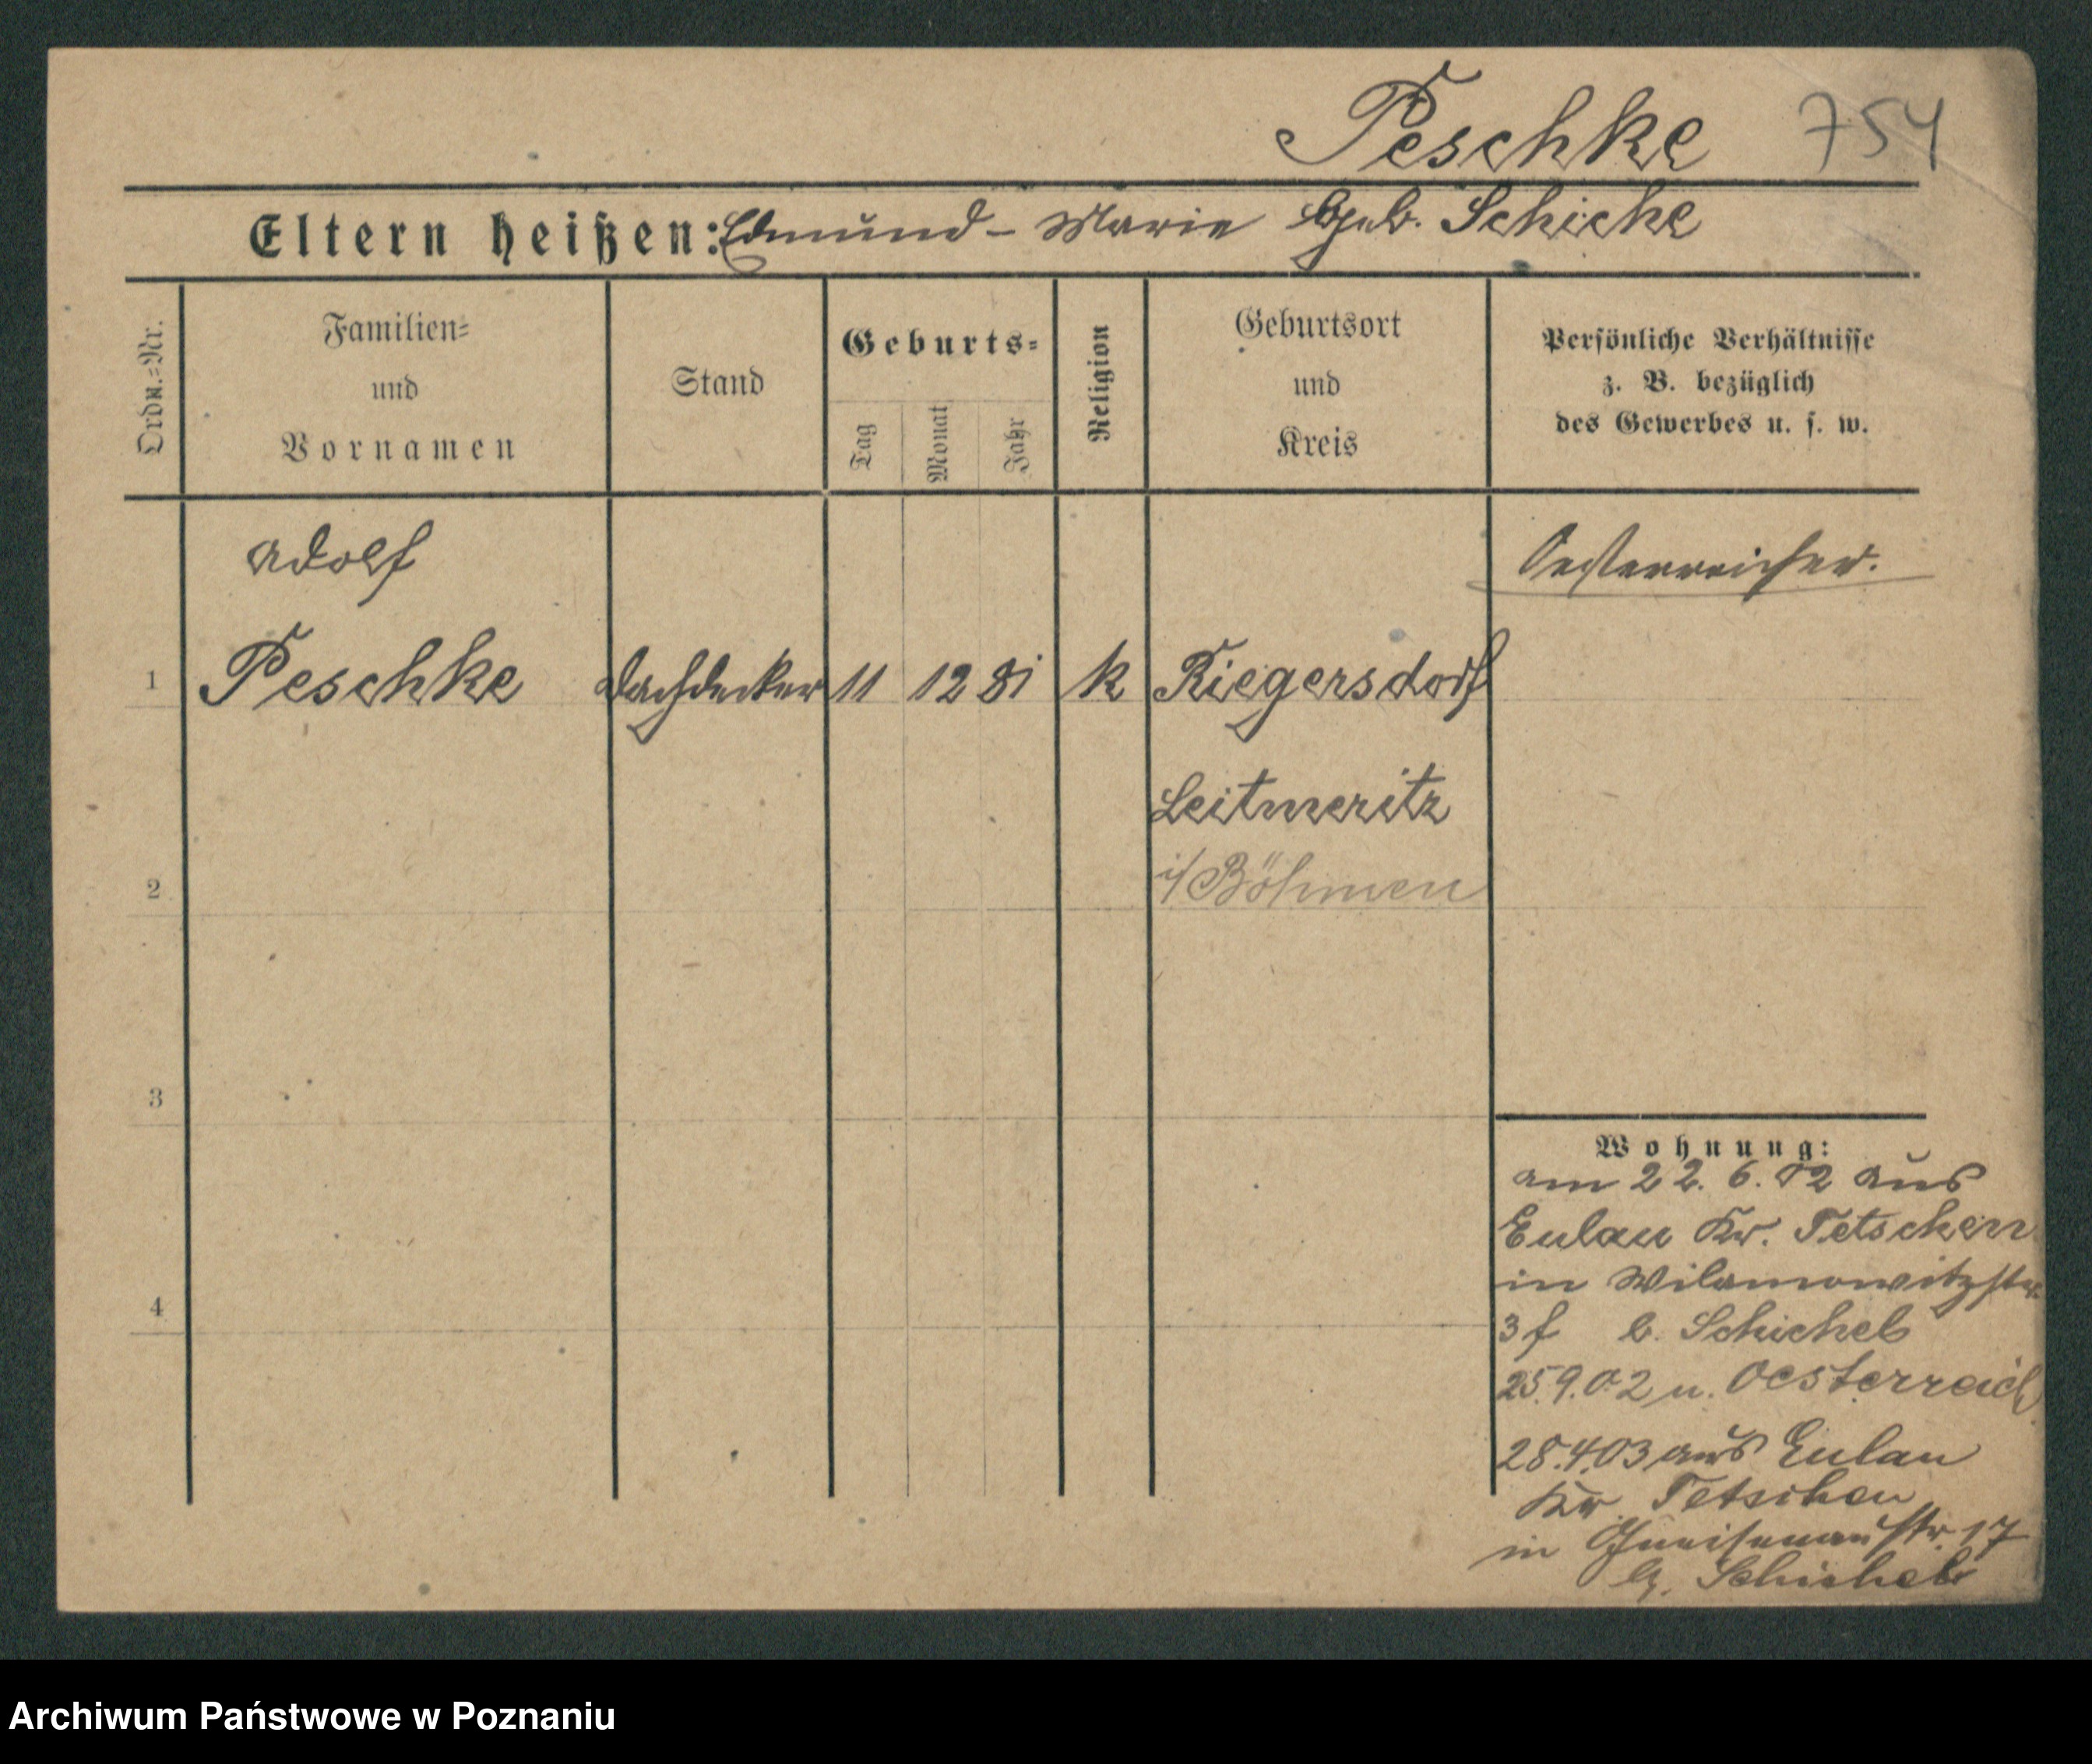 Peschke 754
Eltern heißen: Edmund - Marie geb. Schicke
Ordn.=Nr.
Familien=
und
Vornamen
Stand
Geburts=
Tag
Monat
Jahr
Religion
Geburtsort
und
Kreis
Persönliche Verhältnisse
z. B. bezüglich
des Gewerbes u. s. w.
Adolf
Oesterreicher.
1 Peschke Dachdecker 11 12 81 k Riegersdorf
Leitmeritz
2 i/Böhmen
3
Wohnung:
am 22. 6. 02 aus
Eulau Kr. Tetschen
in Wilamowitzstr.
4
3 f b. Schichel
25.9.02 n. Oesterreich
28.4.03 aus Eulau
Kr. Tetschen
in Gneisenaustr. 17
b. Schichel
Archiwum Państwowe w Poznaniu